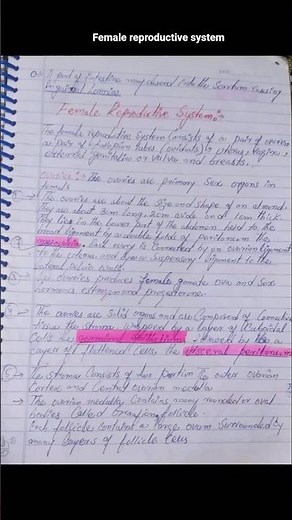 Female reproductive system
A part of Intestine may descend into the Scrotum causing
Inguinal hernia
Female Reproductive System:-
The female reproductive System Consists of a pair of ovaries
a pair of fallopian tubes (oviducts), uterus, vagina,
external genitalia or vulva and breasts.
Ovaries:- The ovaries are primary Sex organs in
female
The ovaries are about the Size and shape of an almond.
are about 3cm long, 2cm wide and 1cm thick.
They lie in the lower part of the abdomen held to the
ligament by a double fold of peritoneum the
Each ovary is Connected by an ovarian ligament
to the uterus and by a Suspensory ligament to the
lateral pelvic wall.
The ovaries produce female gamete ova and Sex
hormones estrogen and progesterone.
The ovaries are Solid organs and are Composed of Connective
tissue the stroma, wrapped by a layer of Cuboidal
Cells the germinal epithelium, Covered by
layer of flattened Cells the visceral peritoneum
The Stroma Consists of two portion the outer ovarian
Cortex and Central ovarian medulla
→ The ovarian medulla Contains many rounded or oval
bodies Called Graafian follicle.
Each follicle contains a large ovum Surrounded by
many layers of follicle Cells